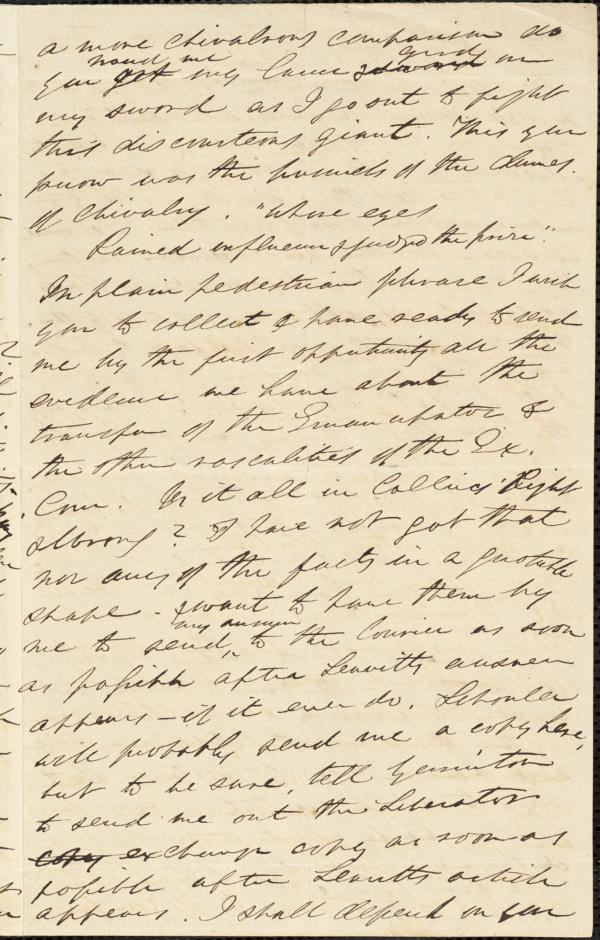 a more chivalrous comparison do
hand me gird
you get my lance on
my sword as I go out to fight
this discourteous giant. This you
know was the business of the dames
of Chivalry. "Whose eyes
Rained influence & judged the prize".
In plain pedestrian phrase I wish
you to collect & have ready to send
me by the first opportunity all the
evidence we have about the
transfer of the Emancipator &
the other rascalities of the Ex.
Com. Is it all in Collins' Right
& Wrong? I have not got that
nor any of the facts in a quotable
shape - I want to have them by
my answer
me to send, to the Courier as soon
as possible after Leavitts answer
appears - if it ever do. Schouler
will probably send me a copy here,
but to be sure, tell Yerrinton
to send me out the Liberator
copy exchange copy as soon as
possible after Leavitts article
appears. I shall depend on you